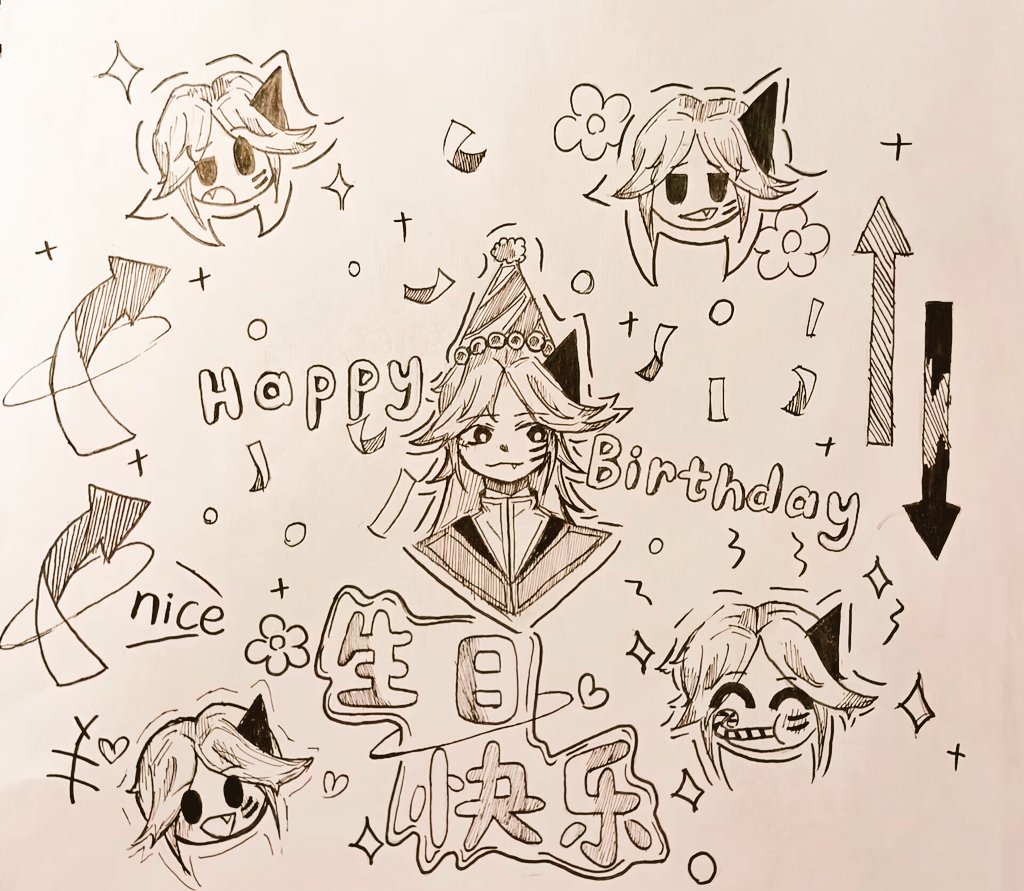 Happy
Birthday
nice
生日
快乐